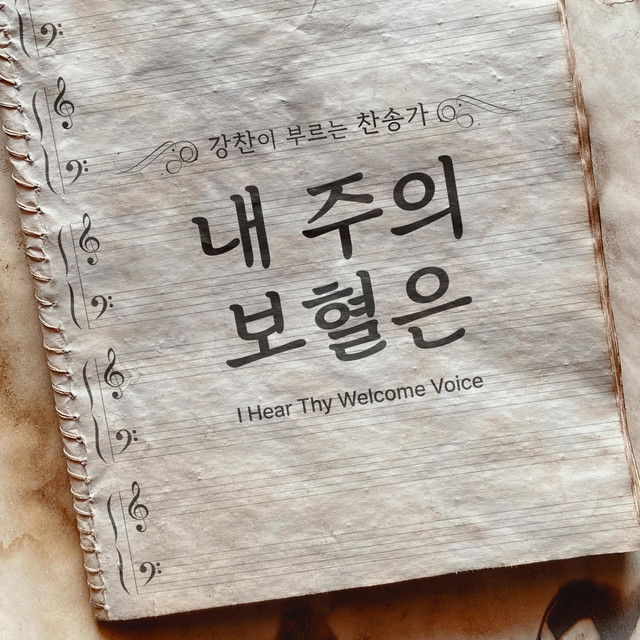 강찬이 부르는 찬송가
내 주의
보혈은
I Hear Thy Welcome Voice